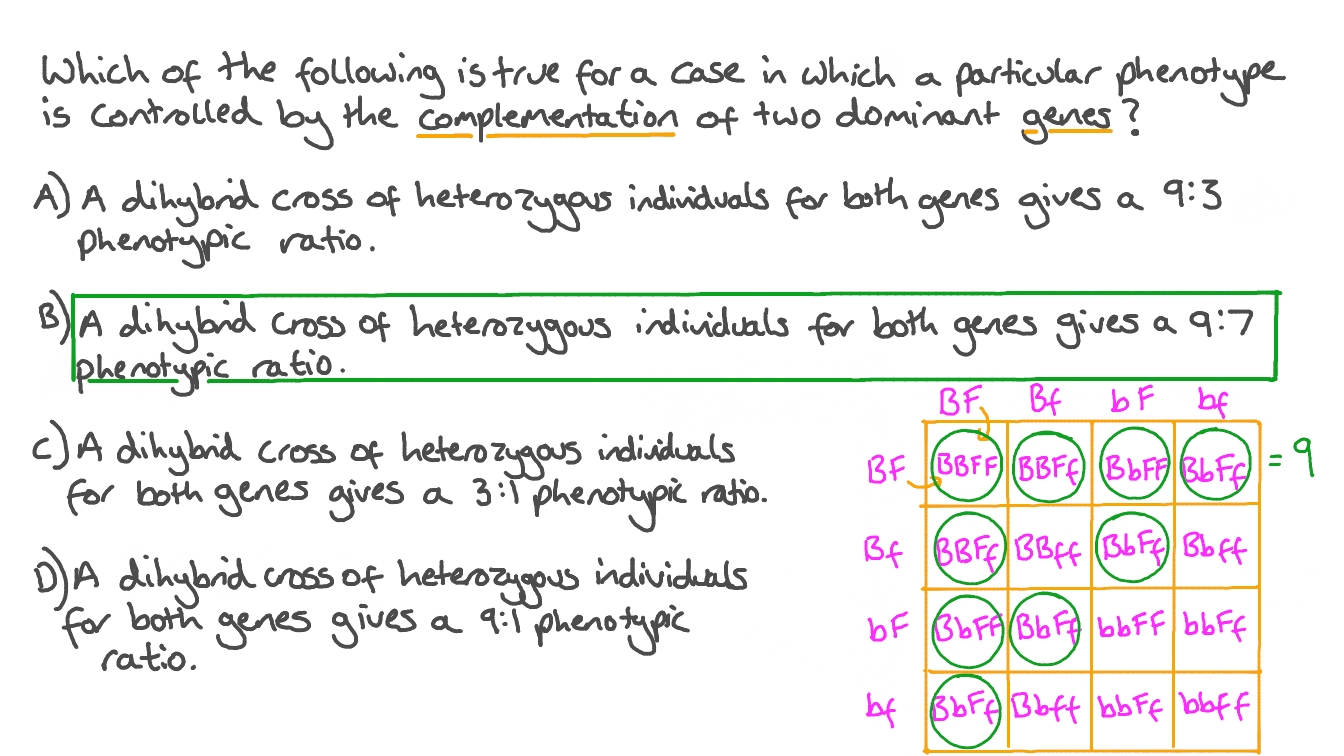 Which of the following is true for a case in which a particular phenotype
is controlled by the complementation of two dominant genes?
A) A dihybrid cross of heterozygous individuals for both genes gives a 9:3
phenotypic ratio.
B) A dihybrid cross of heterozygous individuals for both genes gives a 9:7
phenotypic ratio.
C) A dihybrid cross of heterozygous individuals
for both genes gives a 3:1 phenotypic ratio.
D) A dihybrid cross of heterozygous individuals
for both genes gives a 9:1 phenotypic
ratio.
BF Bf bF bf
BF BBFF BBFf BbFF BbFf = 9
Bf BBFf BBff BbFf Bbff
bF BbFF BbFf bbFF bbFf
bf BbFf Bbff bbFf bbff